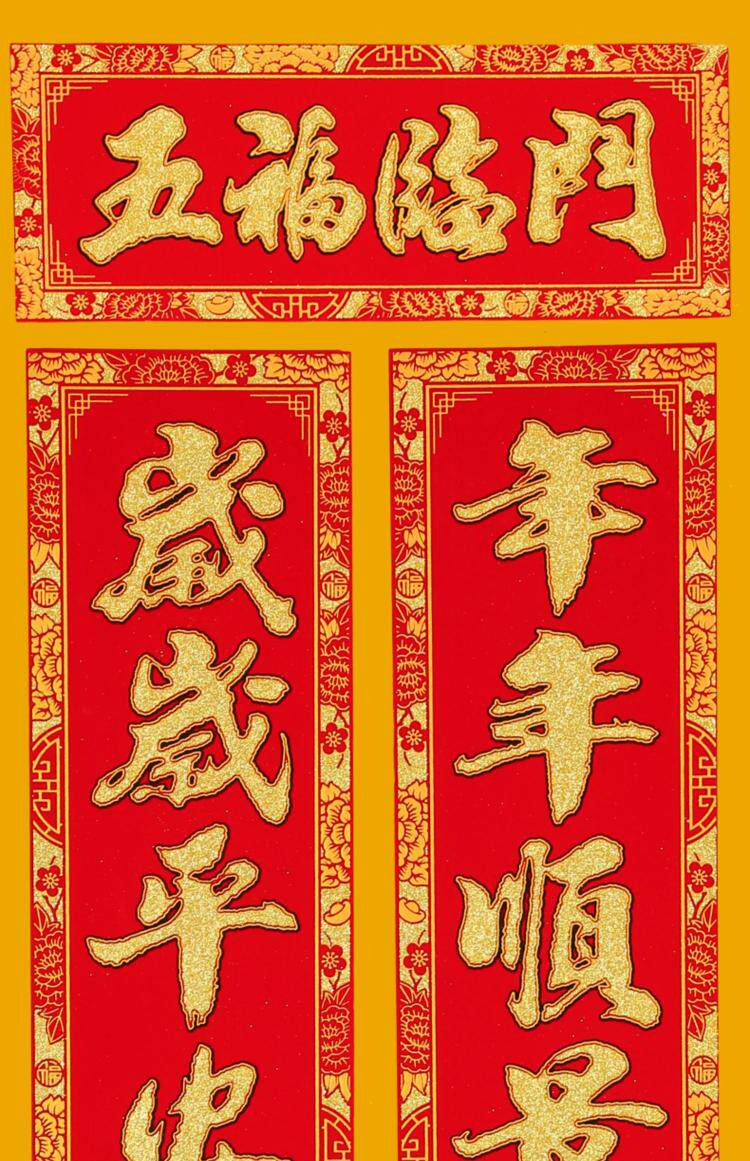 五福臨門
年年順景
歲歲平安